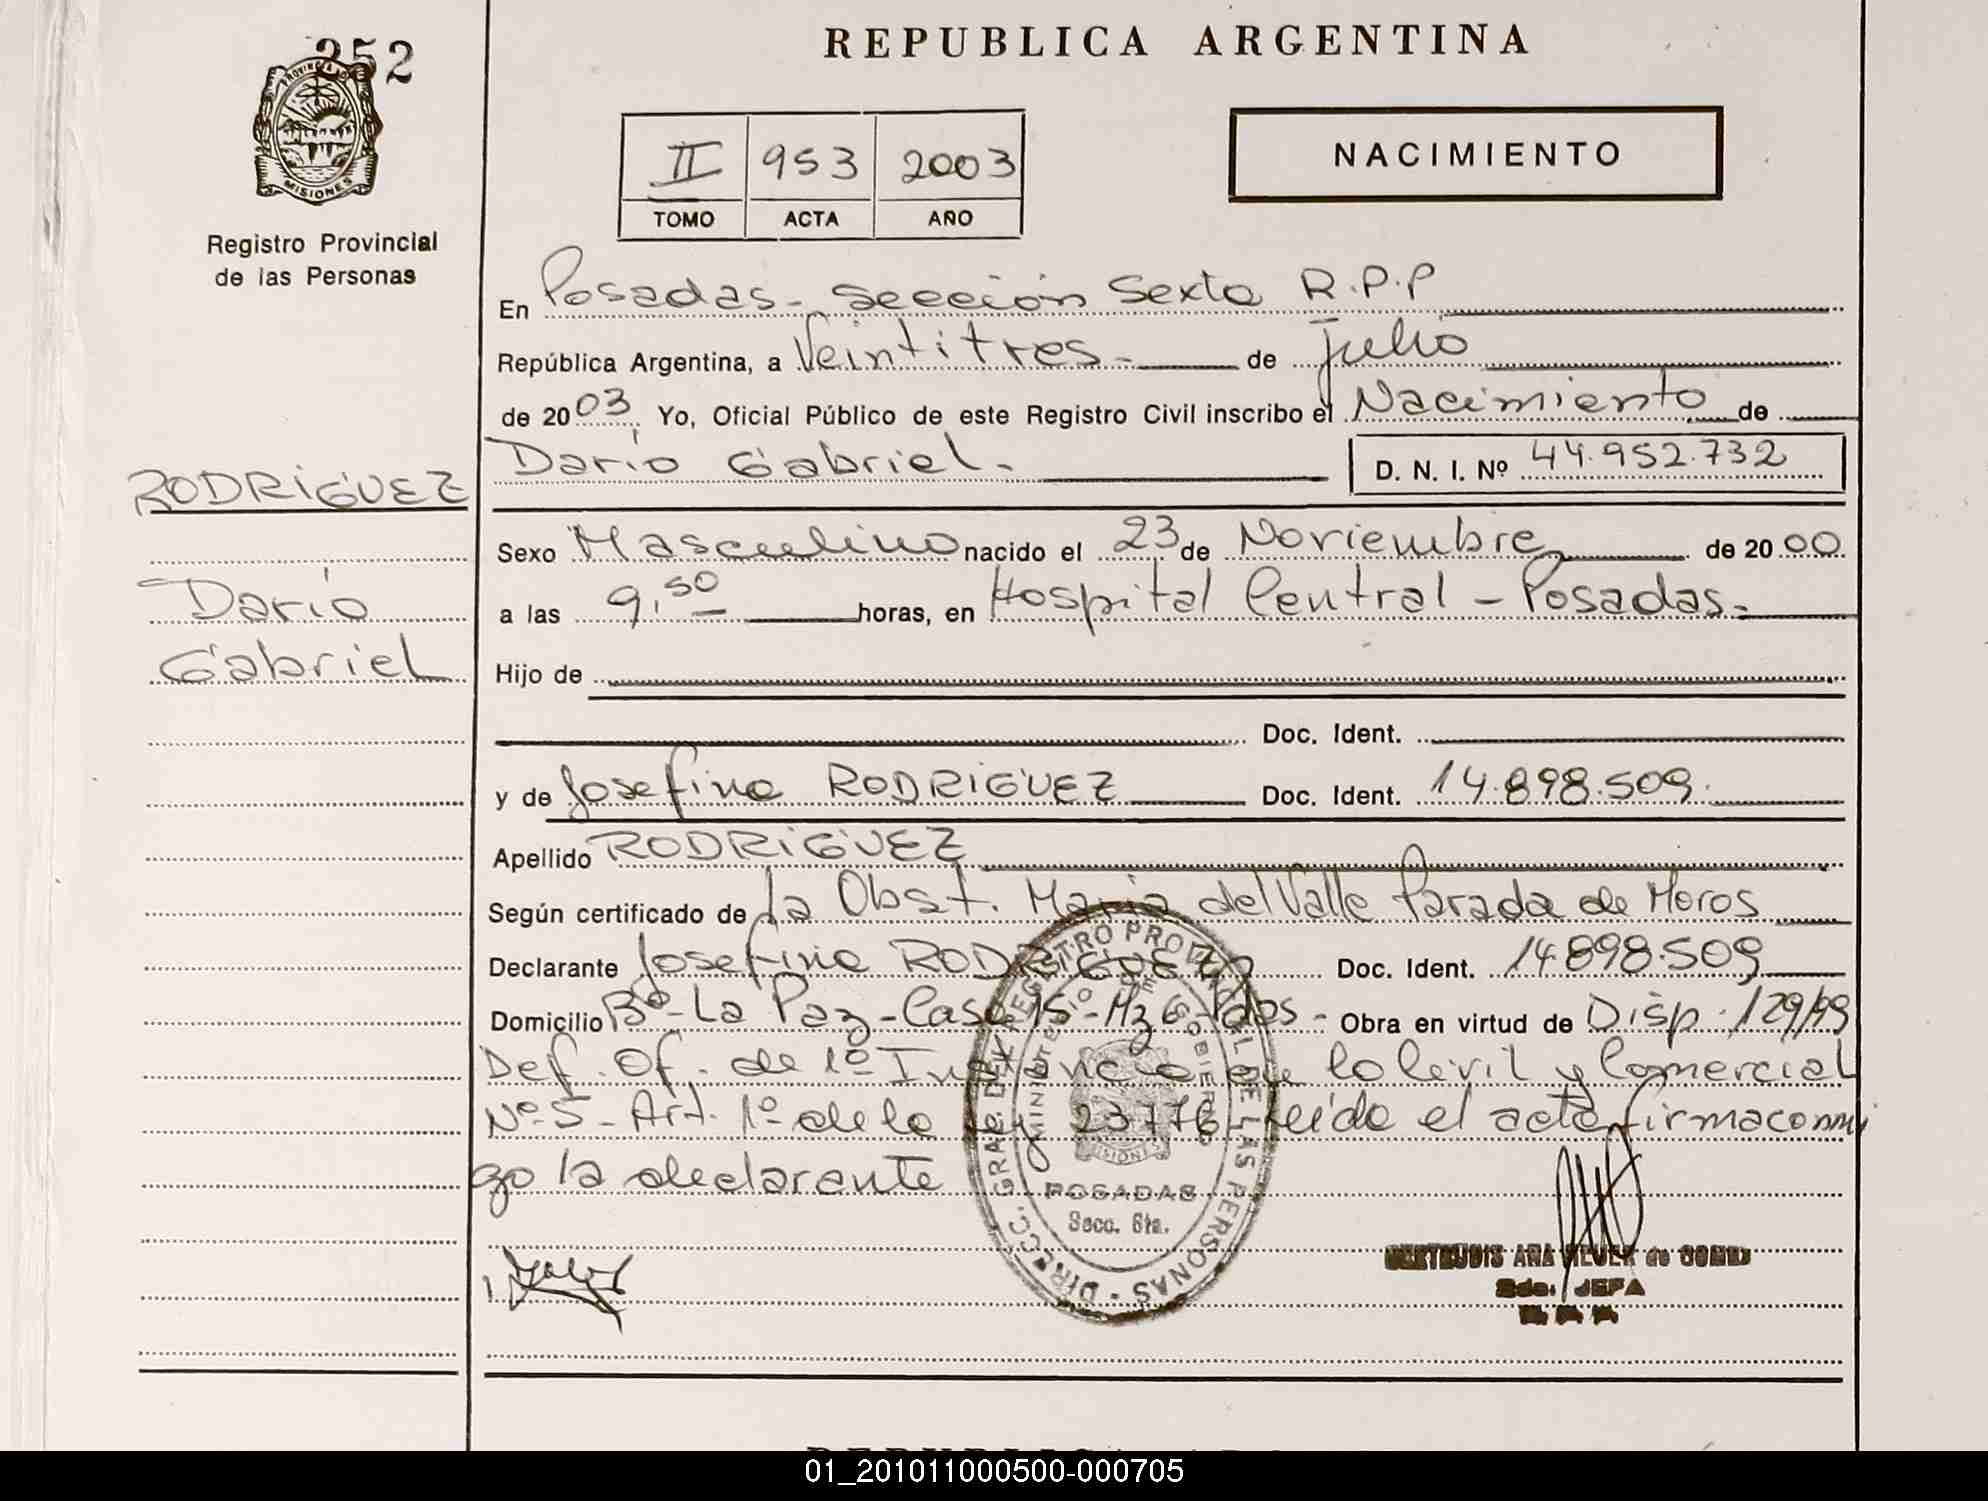 252
PROVINCIA DE
MISIONES
Registro Provincial
de las Personas
REPUBLICA ARGENTINA
II 953 2003
TOMO ACTA AÑO
NACIMIENTO
En Posadas - Sección Sexta R.P.P
República Argentina, a Veintitres.- de Julio
de 2003 Yo, Oficial Público de este Registro Civil inscribo el Nacimiento de
Dario Gabriel.- D. N. I. Nº 44.952.732
RODRIGUEZ
Dario
Gabriel
Sexo Masculino nacido el 23 de Noviembre de 2000
a las 9,50 horas, en Hospital Central - Posadas.-
Hijo de
Doc. Ident.
y de Josefina RODRIGUEZ Doc. Ident. 14.898.509.
Apellido RODRIGUEZ
Según certificado de La Obst. Maria del Valle Parada de Meros
Declarante Josefina RODRIGUEZ Doc. Ident. 14.898.509
Domicilio Bº - La Paz - Casa 15 - Mz 6 - Pdas - Obra en virtud de Disp. 129/99
Def. Of. de 1º Instancia en lo Civil y Comercial
Nº 5 - Art. 1º de la Ley 23776 - Leida el acta firma conmi
go la declarante
DIRECC. GRAL. DEL REGISTRO PROVINCIAL DE LAS PERSONAS
MINISTERIO DE GOBIERNO
MISIONES
POSADAS
Secc. 6ta.
GERTRUDIS ANA de GOMEZ
Sda. JEFA
01_201011000500-000705